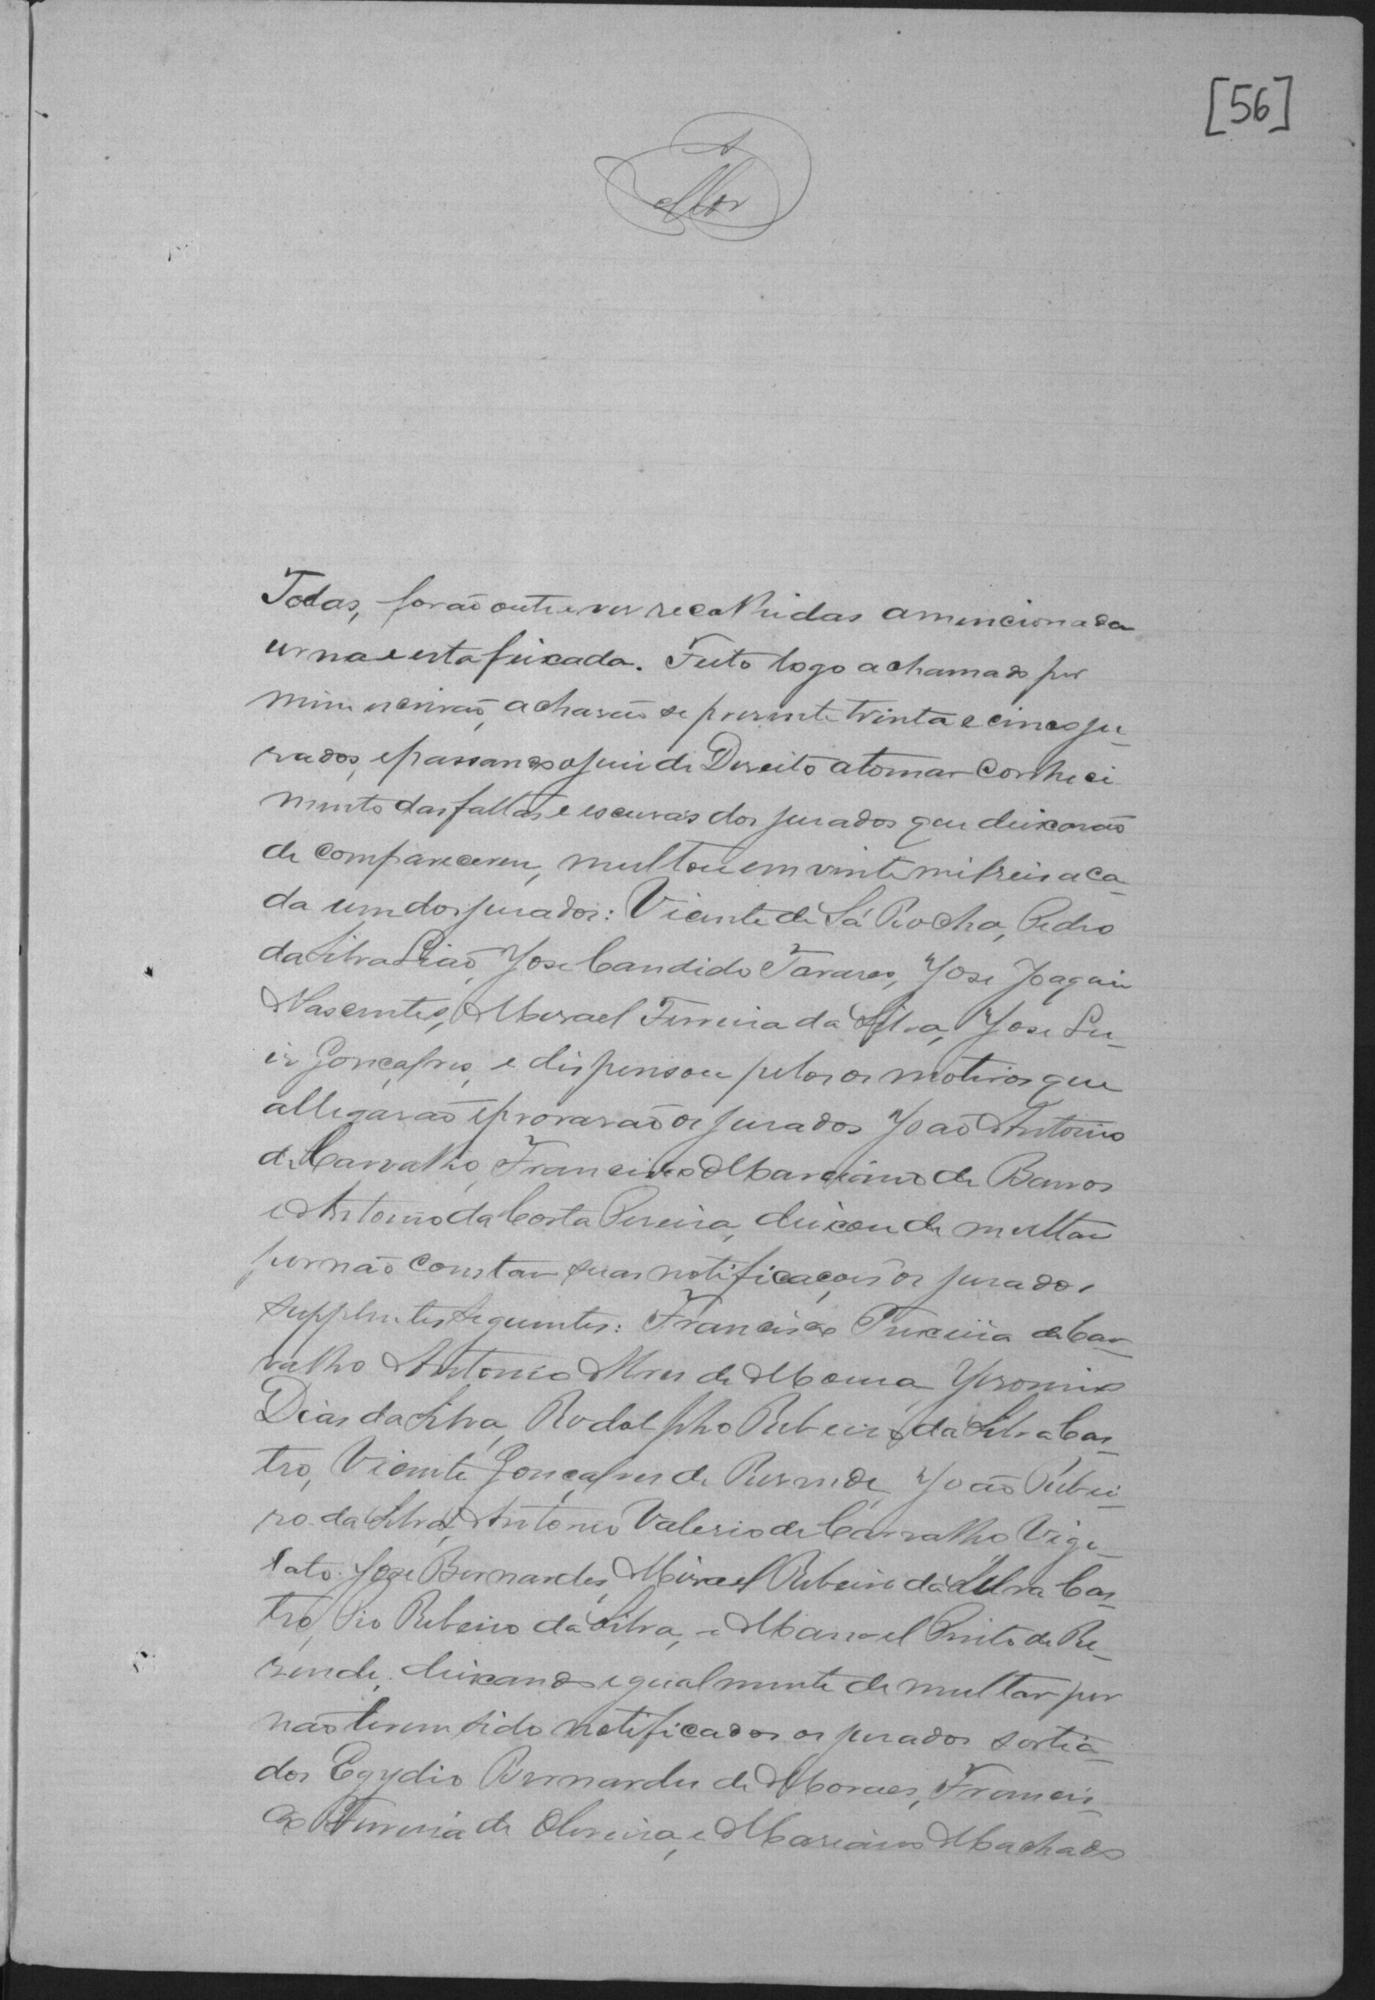 [56]
Todas, forão outra vez recolhidas a mencionada
urna e esta feixada. Feito logo a chamada por
mim escrivão, acharão se presente trinta e cinco ju-
rados, e passando o juiz de Direito a tomar conheci
mento das faltas e escusas dos jurados que deixarão
de comparecerem, multou em vinte mil reis a ca-
da um dos jurados: Vicente de Sá Rocha, Pedro
da Silva Leão, José Candido Tavares, José Joaquim
Nascentes, Misael Ferreira da Silva, José Lu-
iz Gonçalves, e dispensou pelos os motivos que
allegarão e provarão os jurados João Antonio
de Carvalho, Francisco Marciano de Barros
e Antonio da Costa Pereira, deixou de multar
por não constar suas notificações os jurados
supplentes seguintes: Francisco Teixeira de Car-
valho Antonio Alves de Moura Jeronimo
Dias da Silva, Rodolpho Ribeiro da Silva Cas-
tro, Vicente Gonçalves de Resende, João Ribei-
ro da Silva, Antonio Valerio de Carvalho Vige-
lato José Bernardes, Misael Ribeiro da Silva Cas-
tro, Pio Ribeiro da Silva, e Manoel Pinto de Re-
zende, deixando egualmente de multar por
não terem sido notificados os jurados sortia-
dos Egydio Bernardes de Moraes, Francis-
co Ferreira de Oliveira, e Mariano Machado